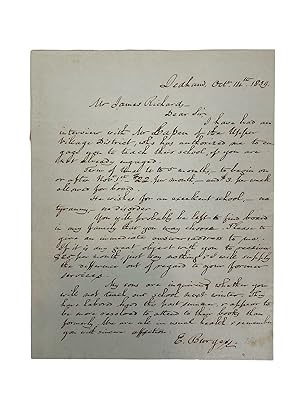 Dedham, Oct. 14th 1829.
Mr James Richards,
Dear Sir,
I have had an
interview with Mr of the Upper
Village District, who has authorized me to en
gage you to teach their school, if you are
not already engaged.
Term of time to months, to begin on
or after Nov. 1st $22 per month, and $ for week
allowed for board.
He wishes for an excellent school, no
tyranny, no disorder.
You will probably be left to find board
in any family that you may choose. Please to
give an immediate answer
if it is any great object with you to receive
per month, just say nothing & I will supply
the difference out of regard to your former
services.
My sons are inquiring whether you
will not teach our school next winter. They
have labored the past summer, & appear to
be more resolved to attend to their books than
formerly. We are all in usual health & remember
you with sincere affection.
E. Burgess